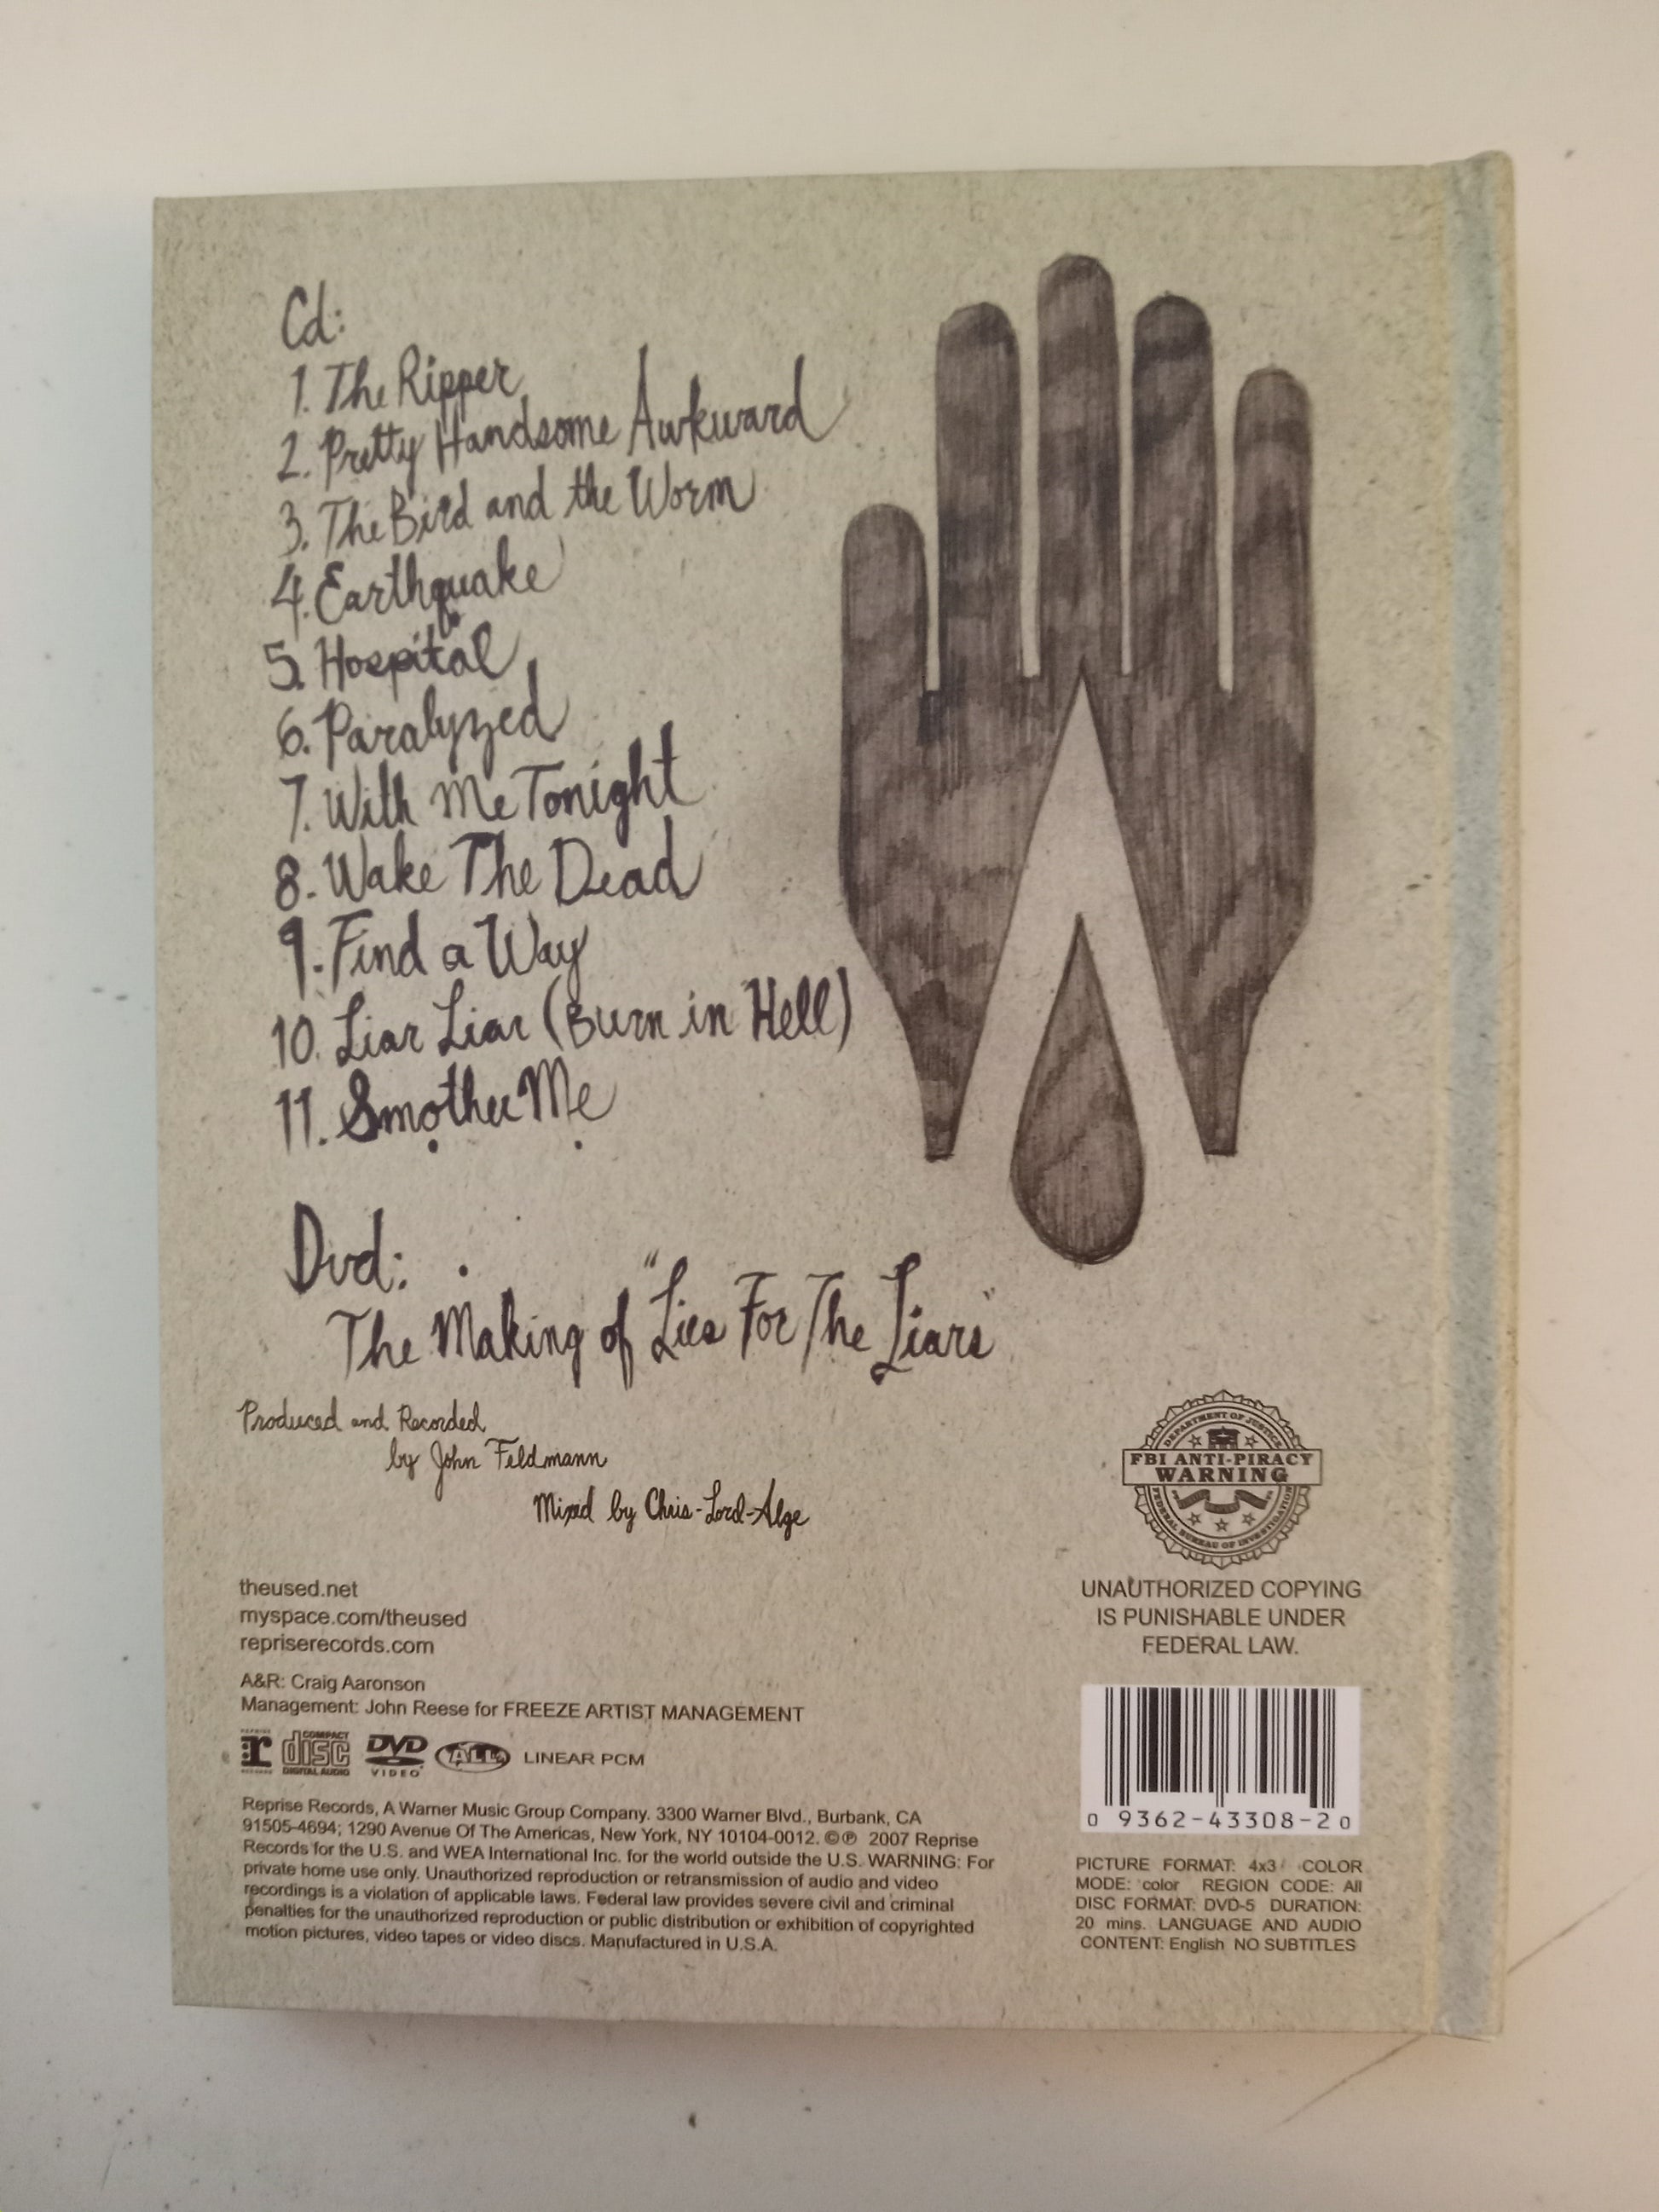 Cd:
1. The Ripper
2. Pretty Handsome Awkward
3. The Bird and the Worm
4. Earthquake
5. Hospital
6. Paralyzed
7. With Me Tonight
8. Wake The Dead
9. Find a Way
10. Liar Liar (Burn in Hell)
11. Smother Me
Dvd:
The Making of "Lies For The Liars"
Produced and Recorded
by John Feldmann
Mixed by Chris-Lord-Alge
DEPARTMENT OF JUSTICE
FBI ANTI-PIRACY
WARNING
FEDERAL BUREAU OF INVESTIGATION
UNAUTHORIZED COPYING
IS PUNISHABLE UNDER
FEDERAL LAW.
theused.net
myspace.com/theused
repriserecords.com
A&R: Craig Aaronson
Management: John Reese for FREEZE ARTIST MANAGEMENT
REPRISE r RECORDS COMPACT disc DIGITAL AUDIO DVD VIDEO ALL LINEAR PCM
Reprise Records, A Warner Music Group Company. 3300 Warner Blvd., Burbank, CA
91505-4694; 1290 Avenue Of The Americas, New York, NY 10104-0012. ©℗ 2007 Reprise
Records for the U.S. and WEA International Inc. for the world outside the U.S. WARNING: For
private home use only. Unauthorized reproduction or retransmission of audio and video
recordings is a violation of applicable laws. Federal law provides severe civil and criminal
penalties for the unauthorized reproduction or public distribution or exhibition of copyrighted
motion pictures, video tapes or video discs. Manufactured in U.S.A.
0 9362-43308-2 0
PICTURE FORMAT: 4x3 COLOR
MODE: color REGION CODE: All
DISC FORMAT: DVD-5 DURATION:
20 mins. LANGUAGE AND AUDIO
CONTENT: English NO SUBTITLES